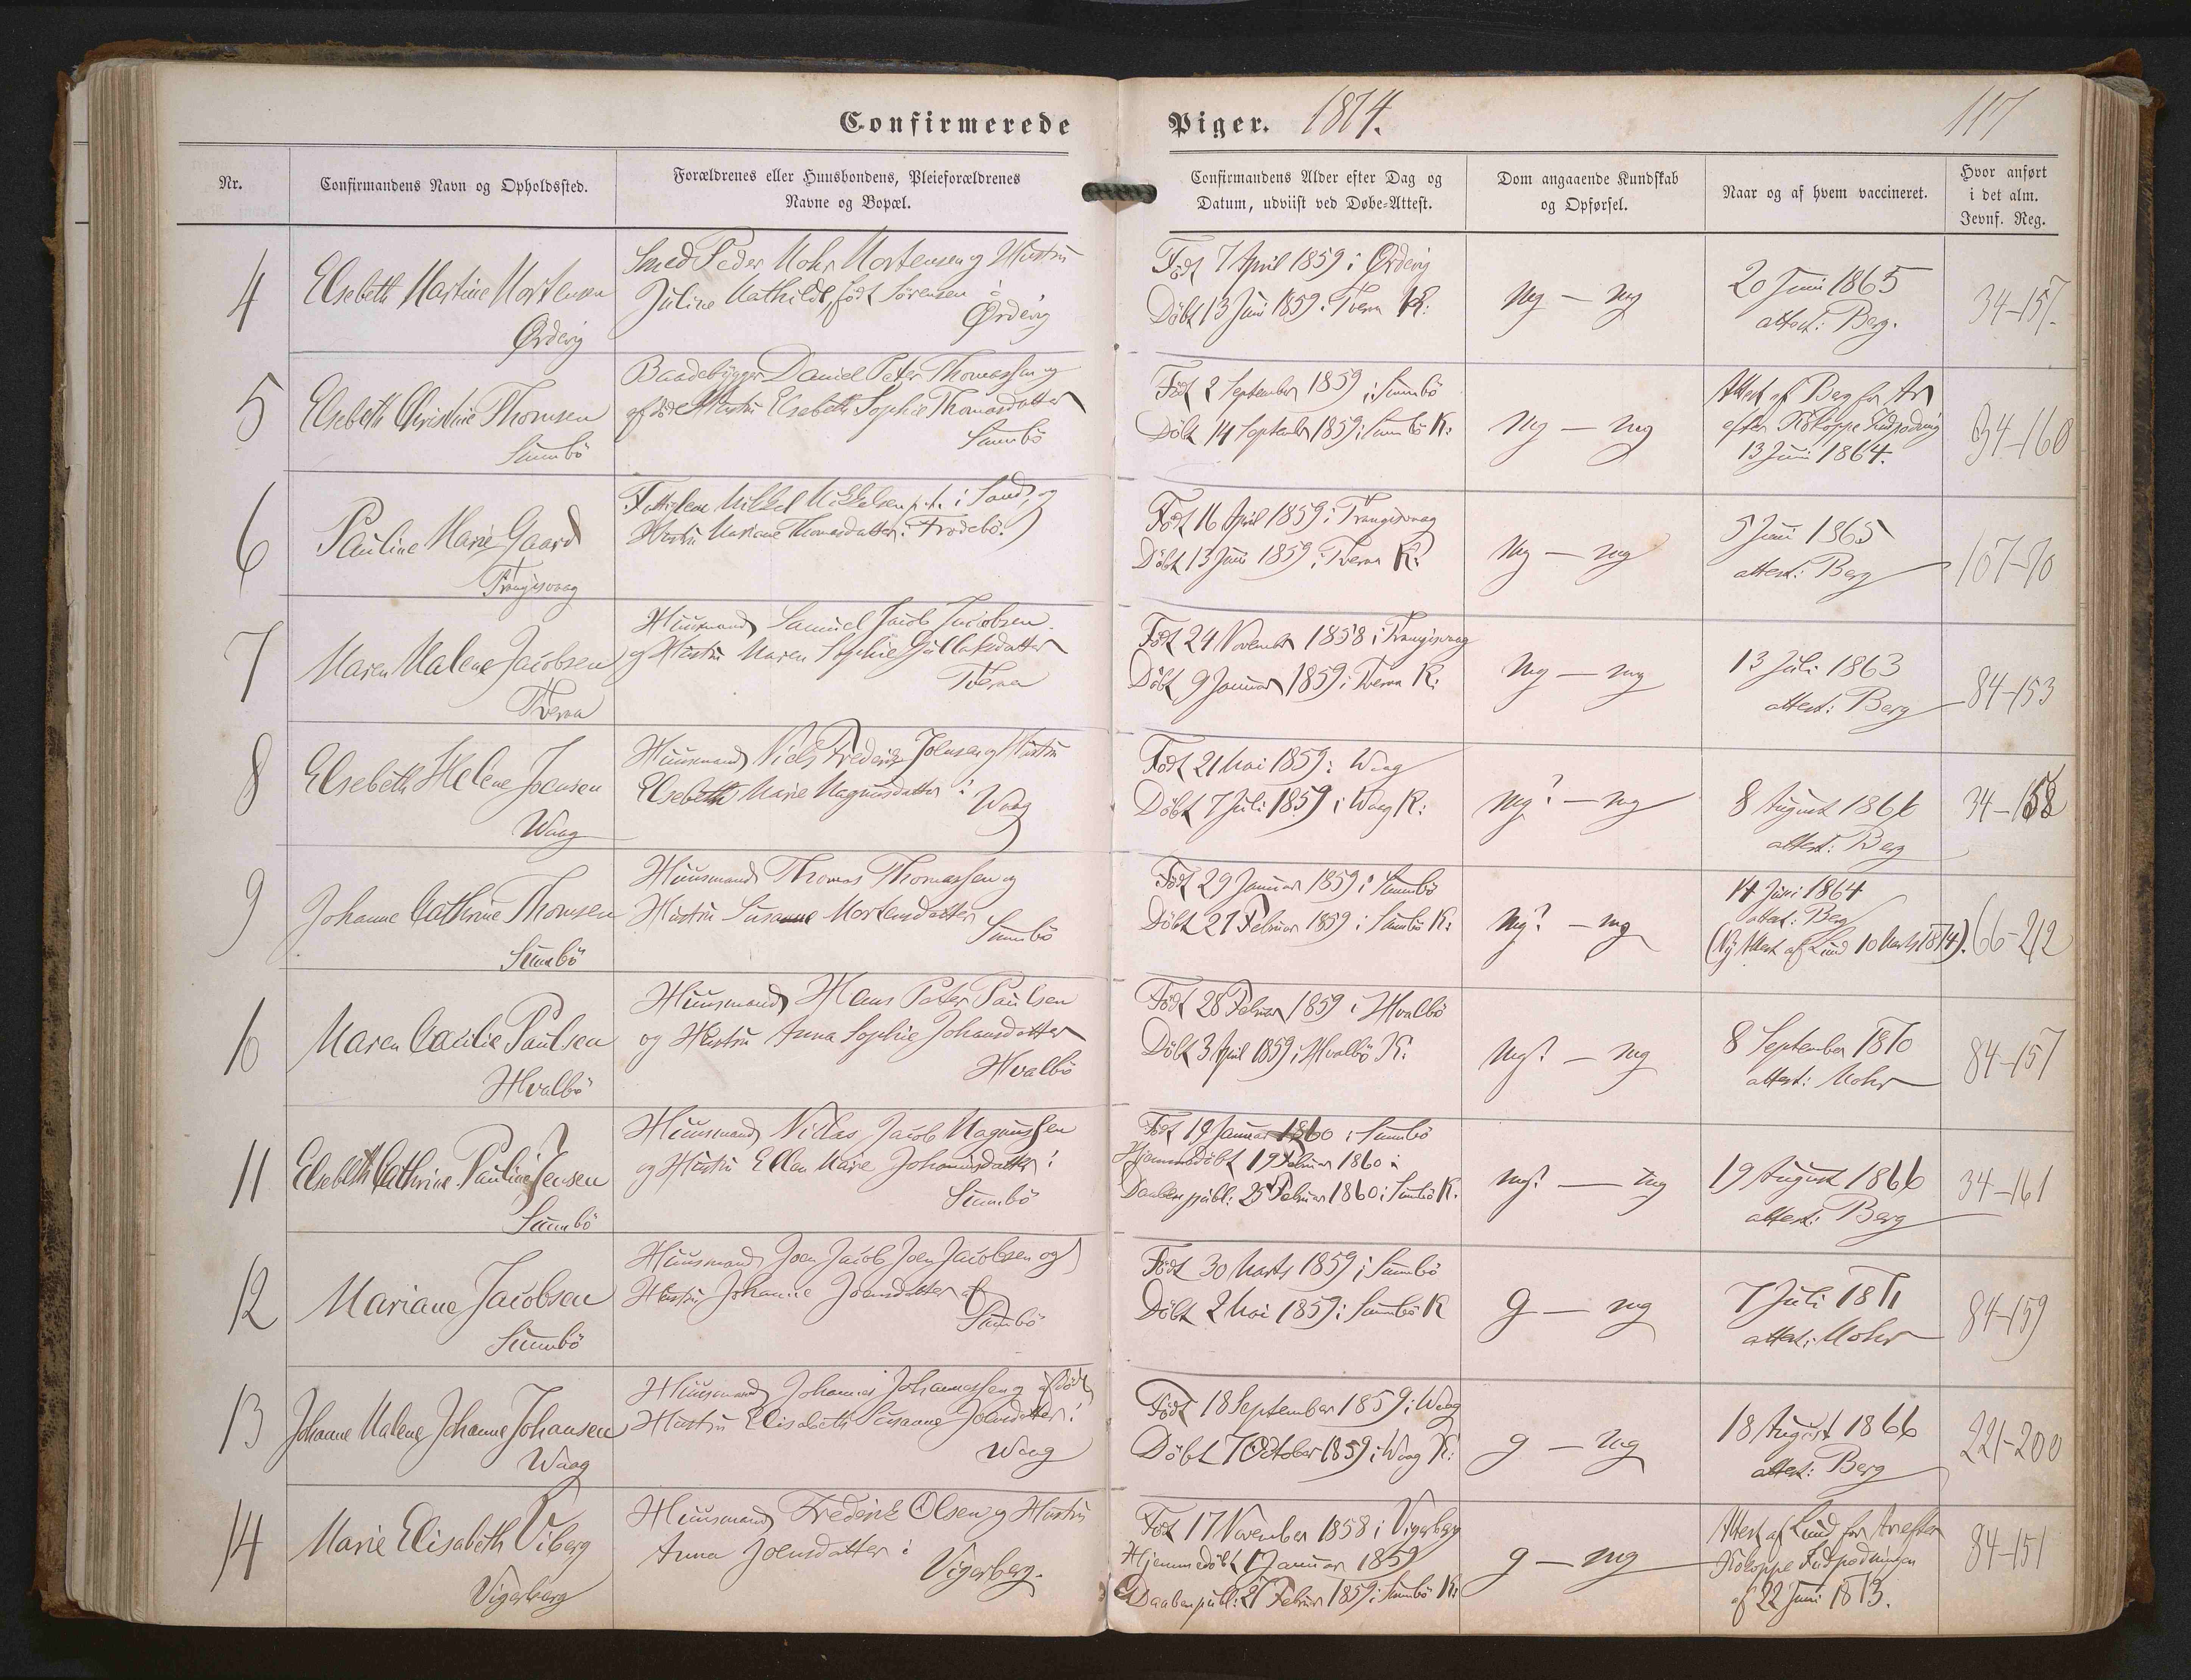 Confirmerede
Piger. 1874.
117
Nr.
Confirmandens Navn og Opholdssted.
Forældrenes eller Huusbondens, Pleieforældrenes
Navne og Bopæl.
Confirmandens Alder efter Dag og
Datum, udviist ved Døbe-Attest.
Dom angaaende Kundskab
og Opførsel.
Naar og af hvem vaccineret.
Hvor anført
i det alm.
Jevnf. Reg.
4
Elsebeth Martine Mortensen
Ørdevig
Smed Peder Mohr Mortensen og Hustru
Juline Mathilde, født Sørensen i
Ørdevig
Født 7 April 1859 i Ørdevig
Döbt 13 Juni 1859 i Tverra K:
mg — mg
20 Juni 1865
attest: Berg.
34-157.
5
Elsebeth Christine Thomsen
Sumbö
Baadebygger Daniel Peter Thomassen og
afdøde Hustru Elsebeth Sophie Thomasdatter
Sumbö
Födt 2 September 1859 i Sumbö
Döbt 14 September 1859 i Sumbö K:
mg — mg
Attest af Berg for Ar
efter Kokoppe Indpodning
13 Juni 1864.
34-160
6
Pauline Marie Gaard
Trangisvaag
Mikkel Mikkelsen p. t. i Sand, og
Hustru Mariane Thomasdatter i Frodebö.
Födt 16 April 1859 i Trangisvaag
Döbt 13 Juni 1859 i Tverra K:
mg — mg
5 Juni 1865
attest: Berg
107-70
7
Maren Malene Jacobsen
Tverra
Huusmand Samuel Jacob Jacobsen
og Hustru Maren Sophie Gullaksdatter
Tverra
Födt 24 November 1858 i Trangisvaag
Döbt 9 Januar 1859 i Tverra K:
mg — mg
13 Juli 1863
attest: Berg
84-153
8
Elsebeth Helene Joensen
Waag
Huusmand Niels Frederik Joensen og Hustru
Elsebeth Marie Magnusdatter i
Waag
Födt 21 Mai 1859 i Waag
Döbt 7 Juli 1859 i Waag K:
mg? — mg
8 August 1866
attest: Berg
34-158
9
Johanne Cathrine Thomsen
Sumbö
Huusmand Thomas Thomassen og
Hustru Susanne Mortensdatter
Sumbö
Födt 29 Januar 1859 i Sumbö
Döbt 27 Februar 1859 i Sumbö K:
mg? — mg
14 Juni 1864
attest: Berg
(Ny Attest af Lund 10 Marts 1874).
66-212
10
Maren Cecilie Paulsen
Hvalbö
Huusmand Hans Peter Paulsen
og Hustru Anna Sophie Johansdatter
Hvalbö
Födt 28 Februar 1859 i Hvalbö
Döbt 3 April 1859 i Hvalbö K:
mg? — mg
8 September 1870
attest: Mohr
84-157
11
Elsebeth Cathrine Pauline Jensen
Sumbö
Huusmand Niclas Jacob Magnussen
og Hustru Ellen Marie Johannisdatter i
Sumbö
Födt 19 Januar 1860 i Sumbö
Hjemmedöbt 19 Februar 1860
Daaben publ: 25 Februar 1860 i Sumbö K.
mg? — mg
19 August 1866
attest: Berg
34-161
12
Mariane Jacobsen
Sumbö
Huusmand Joen Jacob Joen Jacobsen og
Hustru Johanne Joensdatter af
Sumbö
Födt 30 Marts 1859 i Sumbö
Döbt 2 Mai 1859 i Sumbö K
g — mg
7 Juli 1871
attest: Mohr
84-159
13
Johanne Malene Johanne Johansen
Waag
Huusmand Johannes Johannessen og afdöde
Hustru Elisabeth Susanne Joensdatter i
Waag
Födt 18 September 1859 i Waag
Döbt 7 October 1859 i Waag K:
g — mg
18 August 1866
attest: Berg
221-200
14
Marie Elisabeth Viberg
Vigerberg
Huusmand Frederik Olsen og Hustru
Anna Joensdatter i
Vigerberg.
Födt 17 November 1858 i Vigerberg
Hjemmedöbt 17 Januar 1859
Daaben publ: 27 Februar 1859 i Sumbö K:
g — mg
Attest af Lund for Ar efter
Kokoppe Indpodningen
af 22 Juni 1873.
84-151